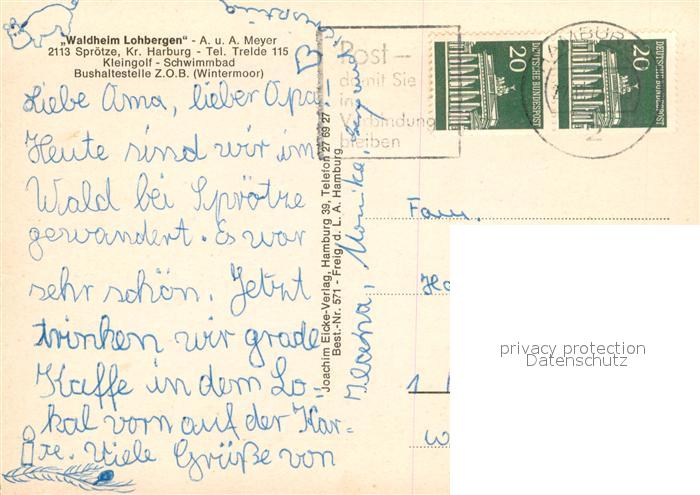 „Waldheim Lohbergen" - A. u. A. Meyer
2113 Sprötze, Kr. Harburg - Tel. Trelde 115
Kleingolf - Schwimmbad
Bushaltestelle Z.O.B. (Wintermoor)
Liebe Oma, lieber Opa!
Heute sind wir im
Wald bei Sprötze
gewandert. Es war
sehr schön. Jetzt
trinken wir grade
Kaffe in dem Lo-
kal vorn auf der Kar-
te. Viele Grüße von
Monika,
Joachim Eicke-Verlag, Hamburg 39, Telefon 27 69 27
Best.-Nr. 571 - Freig. d. L. A. Hamburg
Post –
damit Sie
in
Verbindung
bleiben
20
DEUTSCHE BUNDESPOST
20
DEUTSCHE BUNDESPOST
HAMBURG
2
Fam.
Ha
1
W
privacy protection
Datenschutz